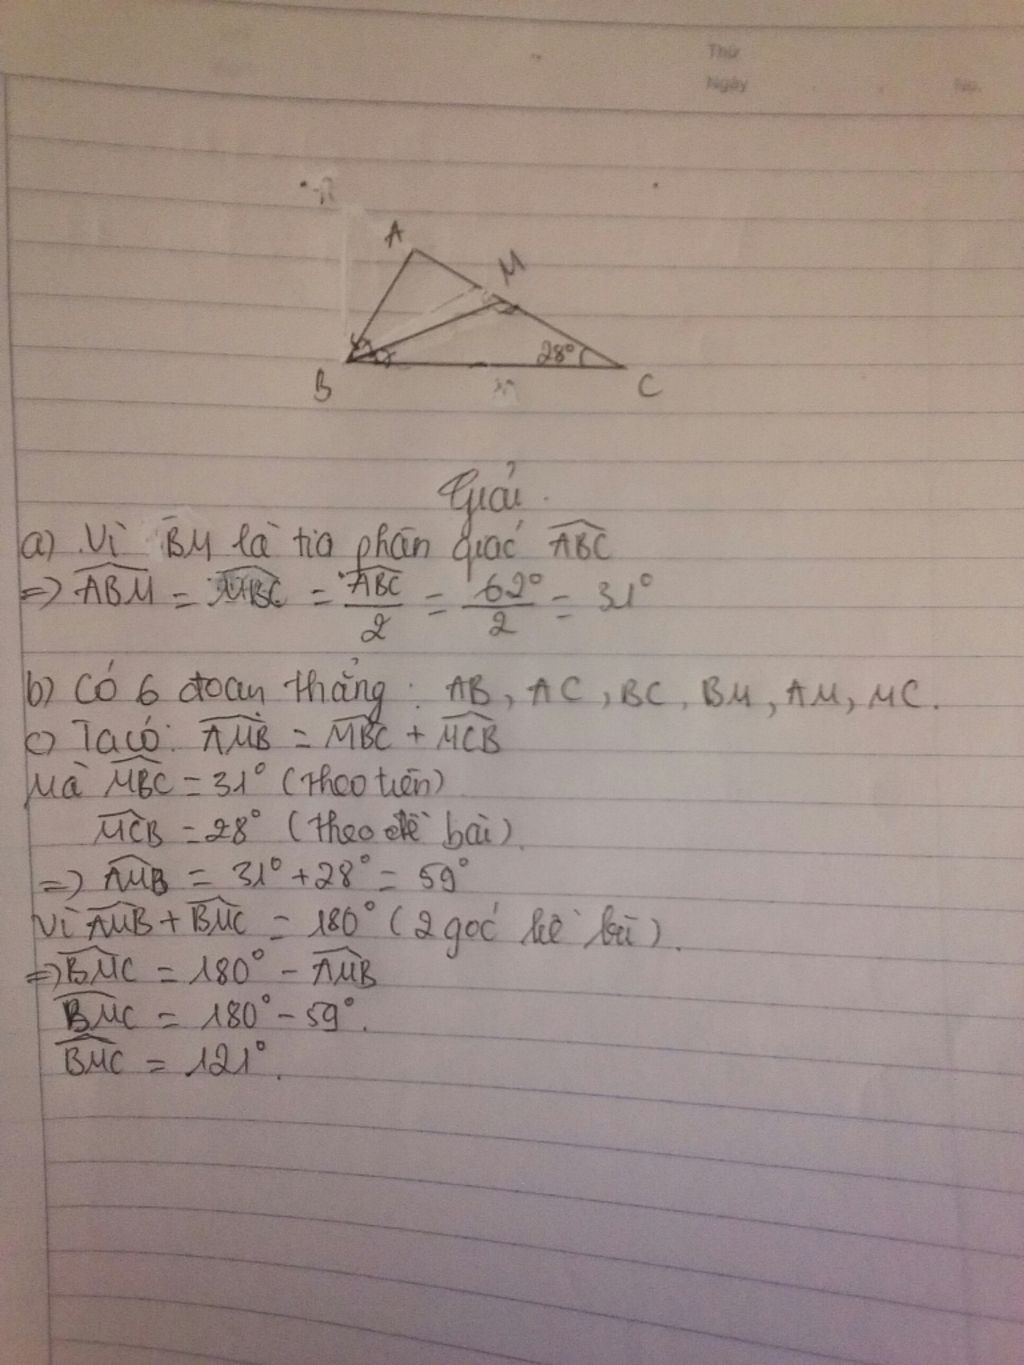 Thứ
Ngày
No.
A
M
28°
B
C
Giải
a) Vì BM là tia phân giác ABC
=> ABM = MBC = ABC/2 = 62°/2 = 31°
b) Có 6 đoạn thẳng: AB, AC, BC, BM, AM, MC.
c) Ta có: AMB = MBC + MCB
Mà MBC = 31° (theo trên)
MCB = 28° (theo đề bài).
=> AMB = 31° + 28° = 59°
Vì AMB + BMC = 180° (2 góc kề bù).
=> BMC = 180° - AMB
BMC = 180° - 59°.
BMC = 121°.